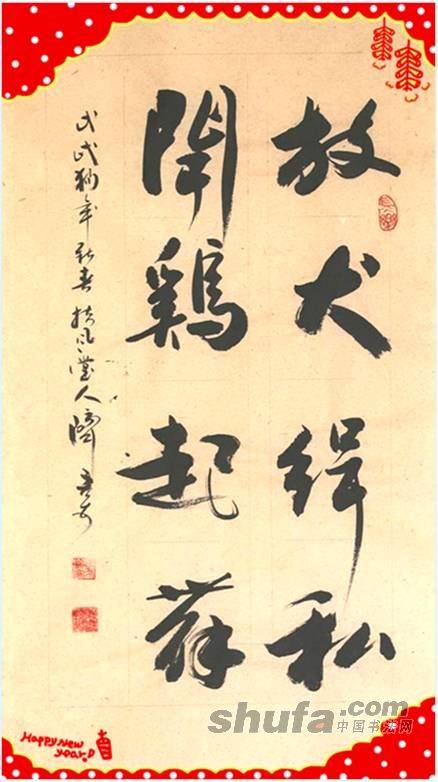 放犬緝私
聞鷄起舞
戊戌狗年新春扶风
Happy New
year
shufa.com
中国书法网